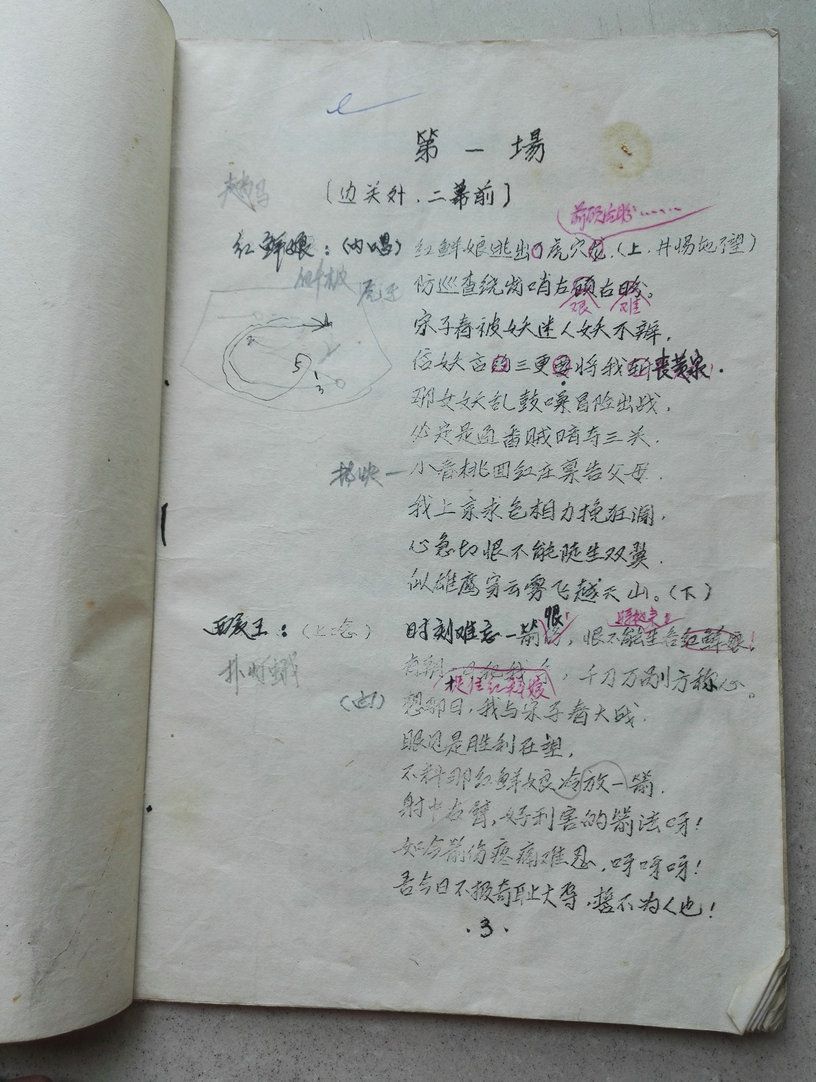 第一場
〔边关外，二幕前〕
红鲜娘：(内唱) 红鲜娘逃出虎穴 (上，井惕地了望)
防巡查绕岗哨左顾右盼。
艰 难
宋子春被妖迷人妖不辨，
信妖言三更将我丧黄泉。
那女妖乱鼓嗓冒险出战，
必定是通番贼暗夺三关。
小香桃回红庄禀告父母，
我上京求包相力挽狂澜，
心急切恨不能陡生双翼
似雄鹰穿云雾飞越天山。(下)
王：(上念) 时刻难忘一箭恨，恨不能生吞红鲜娘！
捉住红鲜娘，千刀万剐方称心。
(白) 想那日，我与宋子春大战，
眼见是胜利在望，
不料那红鲜娘冷放一箭，
射中右臂，好利害的箭法呀！
如今箭伤疼痛难忍，呀呀呀！
吾今日不报奇耻大辱，誓不为人也！
·3·